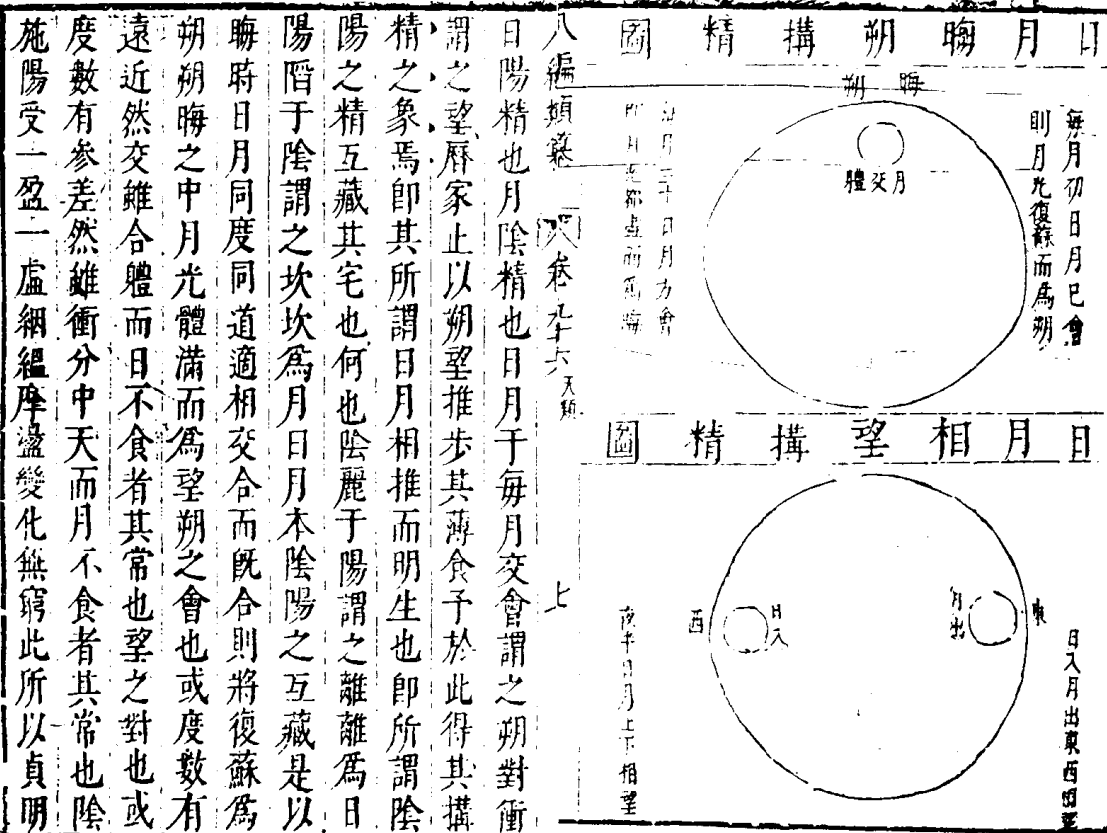 日月晦朔搆精圖
晦朔
月交體
每月初日月已會
則月光復蘇而爲朔
每月三十日月方會
則月光都盡而爲晦
日月相望搆精圖
東
月出
日入
西
日入月出東西相望
夜半日月上下相望
八編類纂
卷九十六
天類
上
日陽精也月陰精也日月于每月交會謂之朔對衝
謂之望曆家止以朔望推步其薄食予於此得其搆
精之象焉卽其所謂日月相推而明生也卽所謂陰
陽之精互藏其宅也何也陰麗于陽謂之離離爲日
陽陷于陰謂之坎坎爲月日月本陰陽之互藏是以
晦時日月同度同道適相交合而旣合則將復蘇爲
朔朔晦之中月光體滿而爲望朔之會也或度數有
遠近然交雖合體而日不食者其常也望之對也或
度數有參差然雖衝分中天而月不食者其常也陰
施陽受一盈一虛絪縕摩盪變化無窮此所以貞明